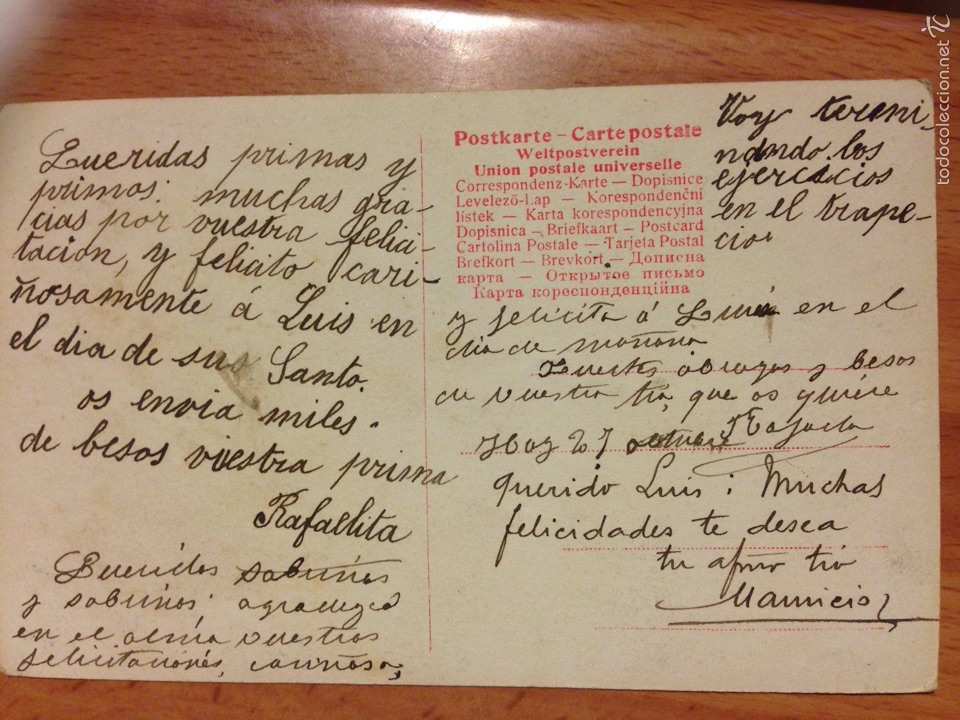 Queridas primas y
primos: muchas gra-
cias por vuestra felici-
tación, y felicito cari-
ñosamente á Luis en
el dia de su Santo.
os envia miles.
de besos vuestra prima
Rafaelita
Queridos sobrinos
y sobrinos: agradezco
en el alma vuestras
felicitaciones, cariñosa,
Postkarte – Carte postale
Weltpostverein
Union postale universelle
Correspondenz-Karte — Dopisnice
Levelező-Lap — Korespondenční
lístek — Karta korespondencyjna
Dopisnica — Briefkaart — Postcard
Cartolina Postale — Tarjeta Postal
Brefkort — Brevkort — Дописна
карта — Открытое письмо
Карта кореспонденційна
y felicita á Luis en el
dia de mañana
abrazos y besos
de vuestra tia, que os quiere
Hoy 27 Rafaela
querido Luis: Muchas
felicidades te desea
tu afmo tio
Mauricio
Voy termi-
nando los
ejercicios
en el trape-
cio.
todocoleccion.net